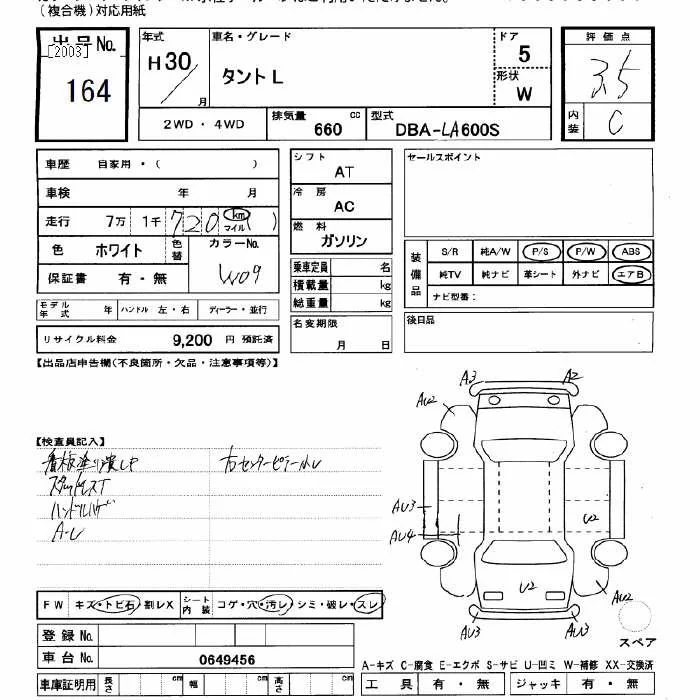 (複合機)対応用紙
出品No.
[2003]
164
年式
H30/月
車名・グレード
タントL
ドア
5
形状
W
評価点
3.5
内装
C
2WD・4WD
排気量
660 cc
型式
DBA-LA600S
車歴 自家用・( )
車検 年 月
走行 7万 1千 720 km マイル
色 ホワイト
色替
カラーNo.
W09
保証書 有・無
モデル年式 年 ハンドル 左・右 ディーラー・並行
リサイクル料金 9,200 円 預託済
シフト
AT
冷房
AC
燃料
ガソリン
乗車定員 名
積載量 kg
総重量 kg
名変期限
月 日
セールスポイント
装備品
S/R 純A/W P/S P/W ABS
純TV 純ナビ 革シート 外ナビ エアB
ナビ型番:
後日品
【出品店申告欄(不良箇所・欠品・注意事項等)】
【検査員記入】
看板塗り潰しP
右センターピラー小U
スタッドレスT
ハンドルハゲ
A-U
A3 A2
AU2
AU3
AU4
U2
U2
AU2
AU3 AU3
スペア
FW キズ・トビ石・割レX
シート内装 コゲ・穴・汚レ・シミ・破レ・スレ
登録No.
車台No. 0649456
車庫証明用 長さ cm 幅 cm 高さ cm
A-キズ C-腐食 E-エクボ S-サビ U-凹ミ W-補修 XX-交換済
工具 有・無 ジャッキ 有・無